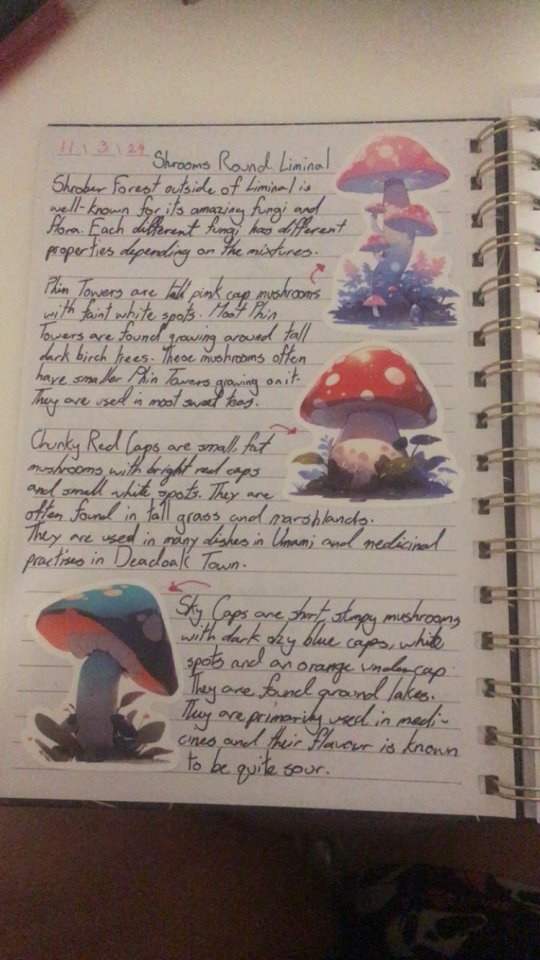 11 \ 3 \ 24
Shrooms Round Liminal
Shrober Forest outside of Liminal is
well-known for its amazing fungi and
flora. Each different fungi has different
properties depending on the mixtures.
Phin Towers are tall pink cap mushrooms
with faint white spots. Most Phin
Towers are found growing around tall
dark birch trees. These mushrooms often
have smaller Phin Towers growing on it.
They are used in most sweet teas.
Chunky Red Caps are small, fat
mushrooms with bright red caps
and small white spots. They are
often found in tall grass and marshlands.
They are used in many dishes in Umami and medicinal
practises in Deadoak Town.
Sky Caps are short, stmpy mushrooms
with dark blue caps, white
spots and an orange undercap
They are found ground lakes.
They are primarily used in medi-
cines and their flavour is known
to be quite sour.